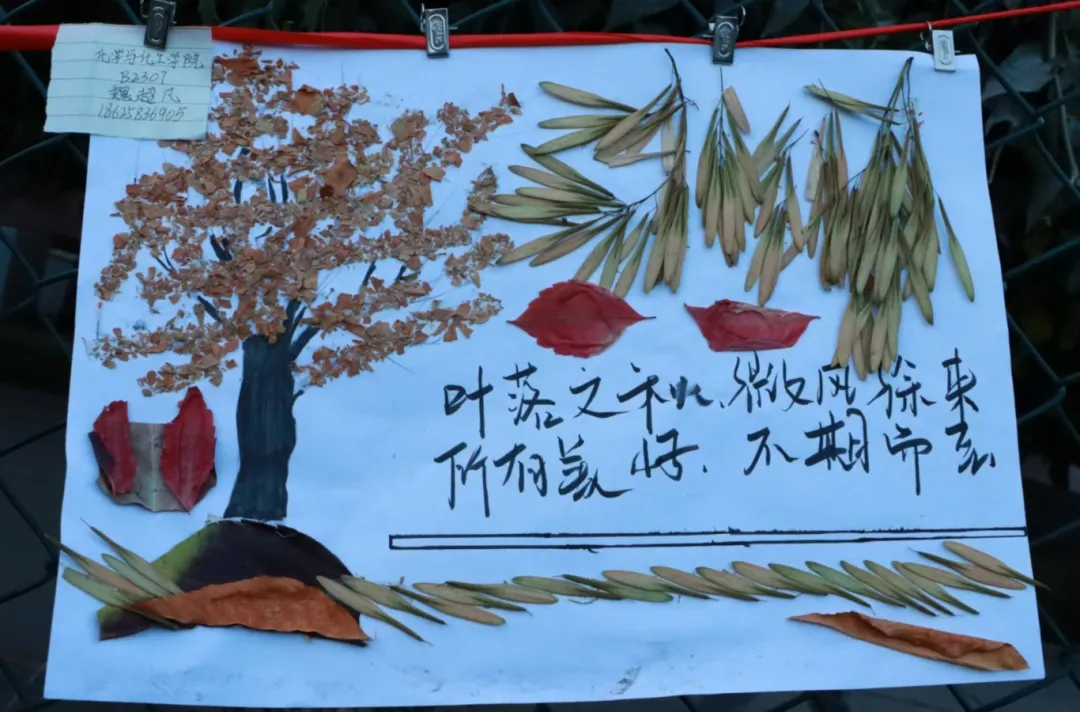 化学与化工学院
B2307
魏超凡
18625836905
叶落之秋、微风徐来
所有美好、不期而去